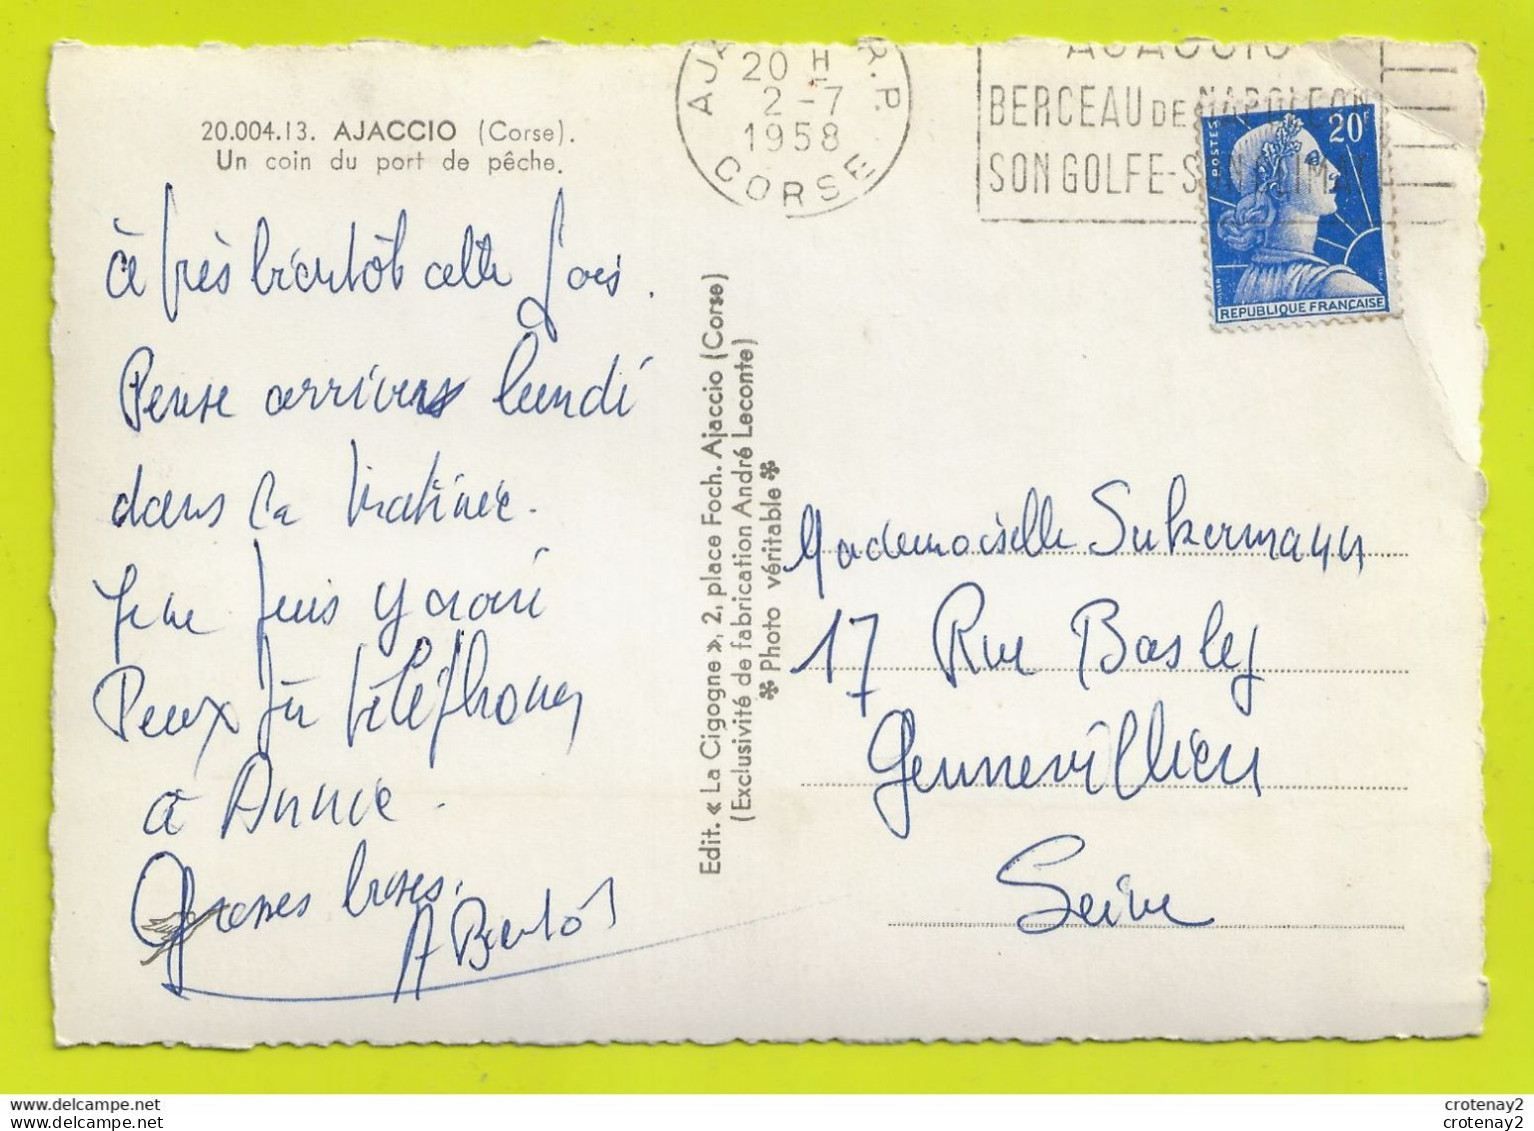 20.004.13. AJACCIO (Corse).
Un coin du port de pêche.
à très bientôt cette fois.
Pense arriver lundi
dans la matinée.
Je me suis
Peux tu téléphoner
à Annie.
Grosses bises.
A Bientôt
Edit. « La Cigogne », 2, place Foch. Ajaccio (Corse)
(Exclusivité de fabrication André Leconte)
✻ Photo véritable ✻
AJ R.P.
20 H
2-7
1958
CORSE
AJACCIO
BERCEAU DE NAPOLEON
SON GOLFE-SON CLIMAT
POSTES
20F
REPUBLIQUE FRANÇAISE
Mademoiselle Sukermann
17 Rue Basley
Gennevilliers
Seine
crotenay2
crotenay2